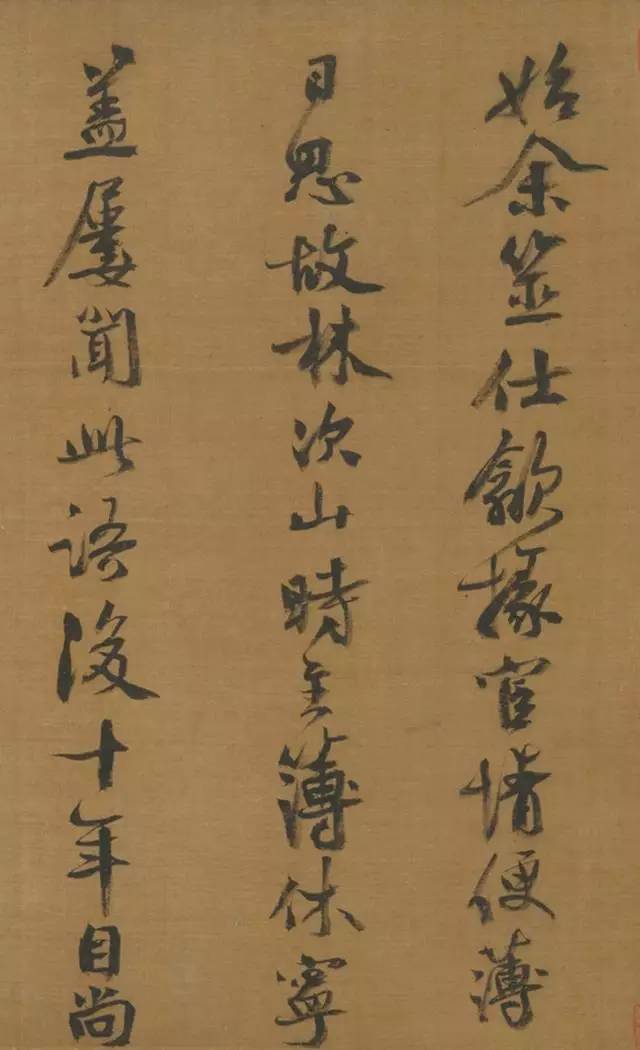 始余筮仕歙掾宦情便薄
日思故林次山時主簿休寧
盖屢聞此語後十年自尚